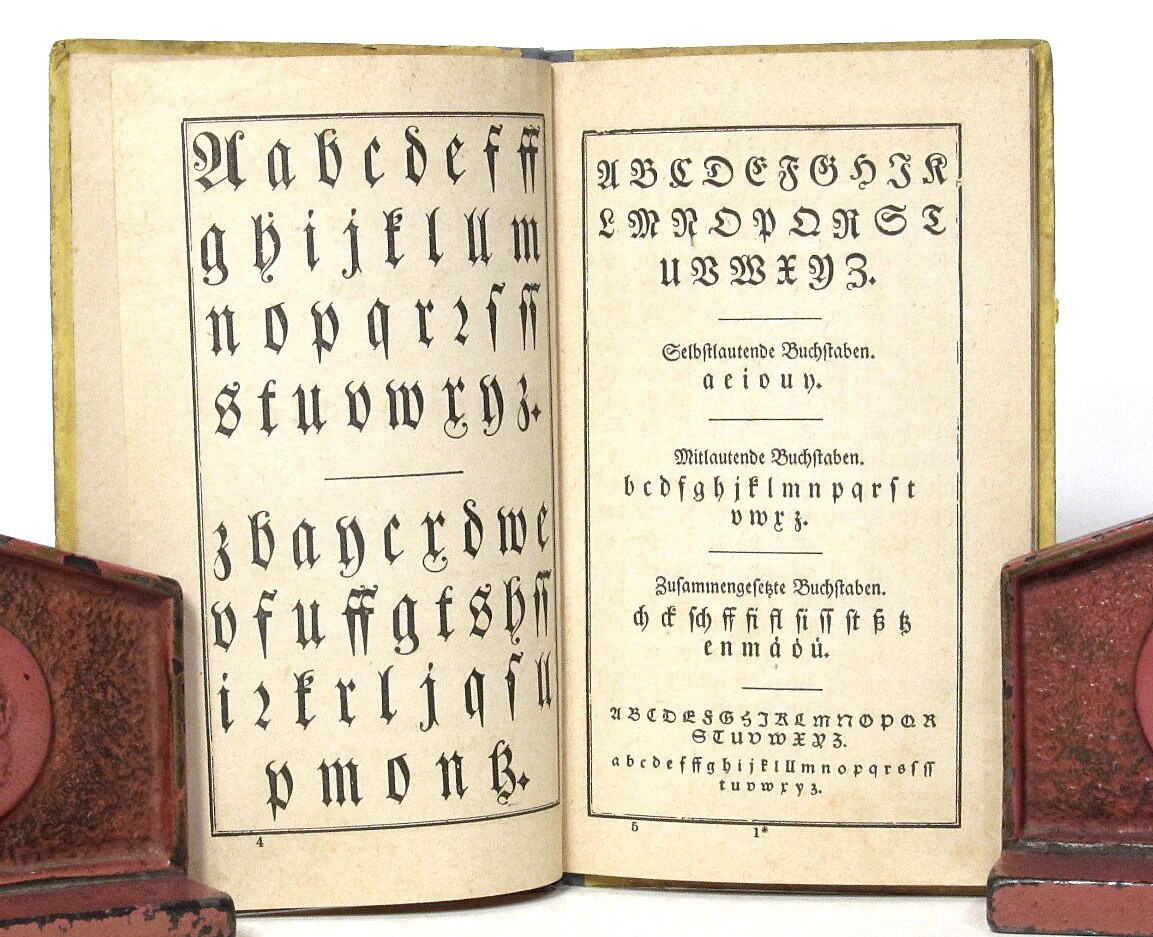 A a b c d e f ff
g h i j k l ll m
n o p q r ꝛ ſ ſſ
s t u v w x y z.
z b a y c x d w e
v f u ff g t s h ſſ
i ꝛ k r l j q ſ ll
p m o n tz.
4
A B C D E F G H I K
L M N O P Q R S T
U V W X Y Z.
Selbſtlautende Buchſtaben.
a e i o u y.
Mitlautende Buchſtaben.
b c d f g h j k l m n p q r ſ t
v w x z.
Zuſammengeſetzte Buchſtaben.
ch ck ſch ff fi fl ſi ſſ ſt ß tz
e n m aͤ oͤ uͤ.
A B C D E F G H J K L M N O P Q R
S T U V W X Y Z.
a b c d e f ff g h i j k l ll m n o p q r s ſ ſſ
t u v w x y z.
5 1*